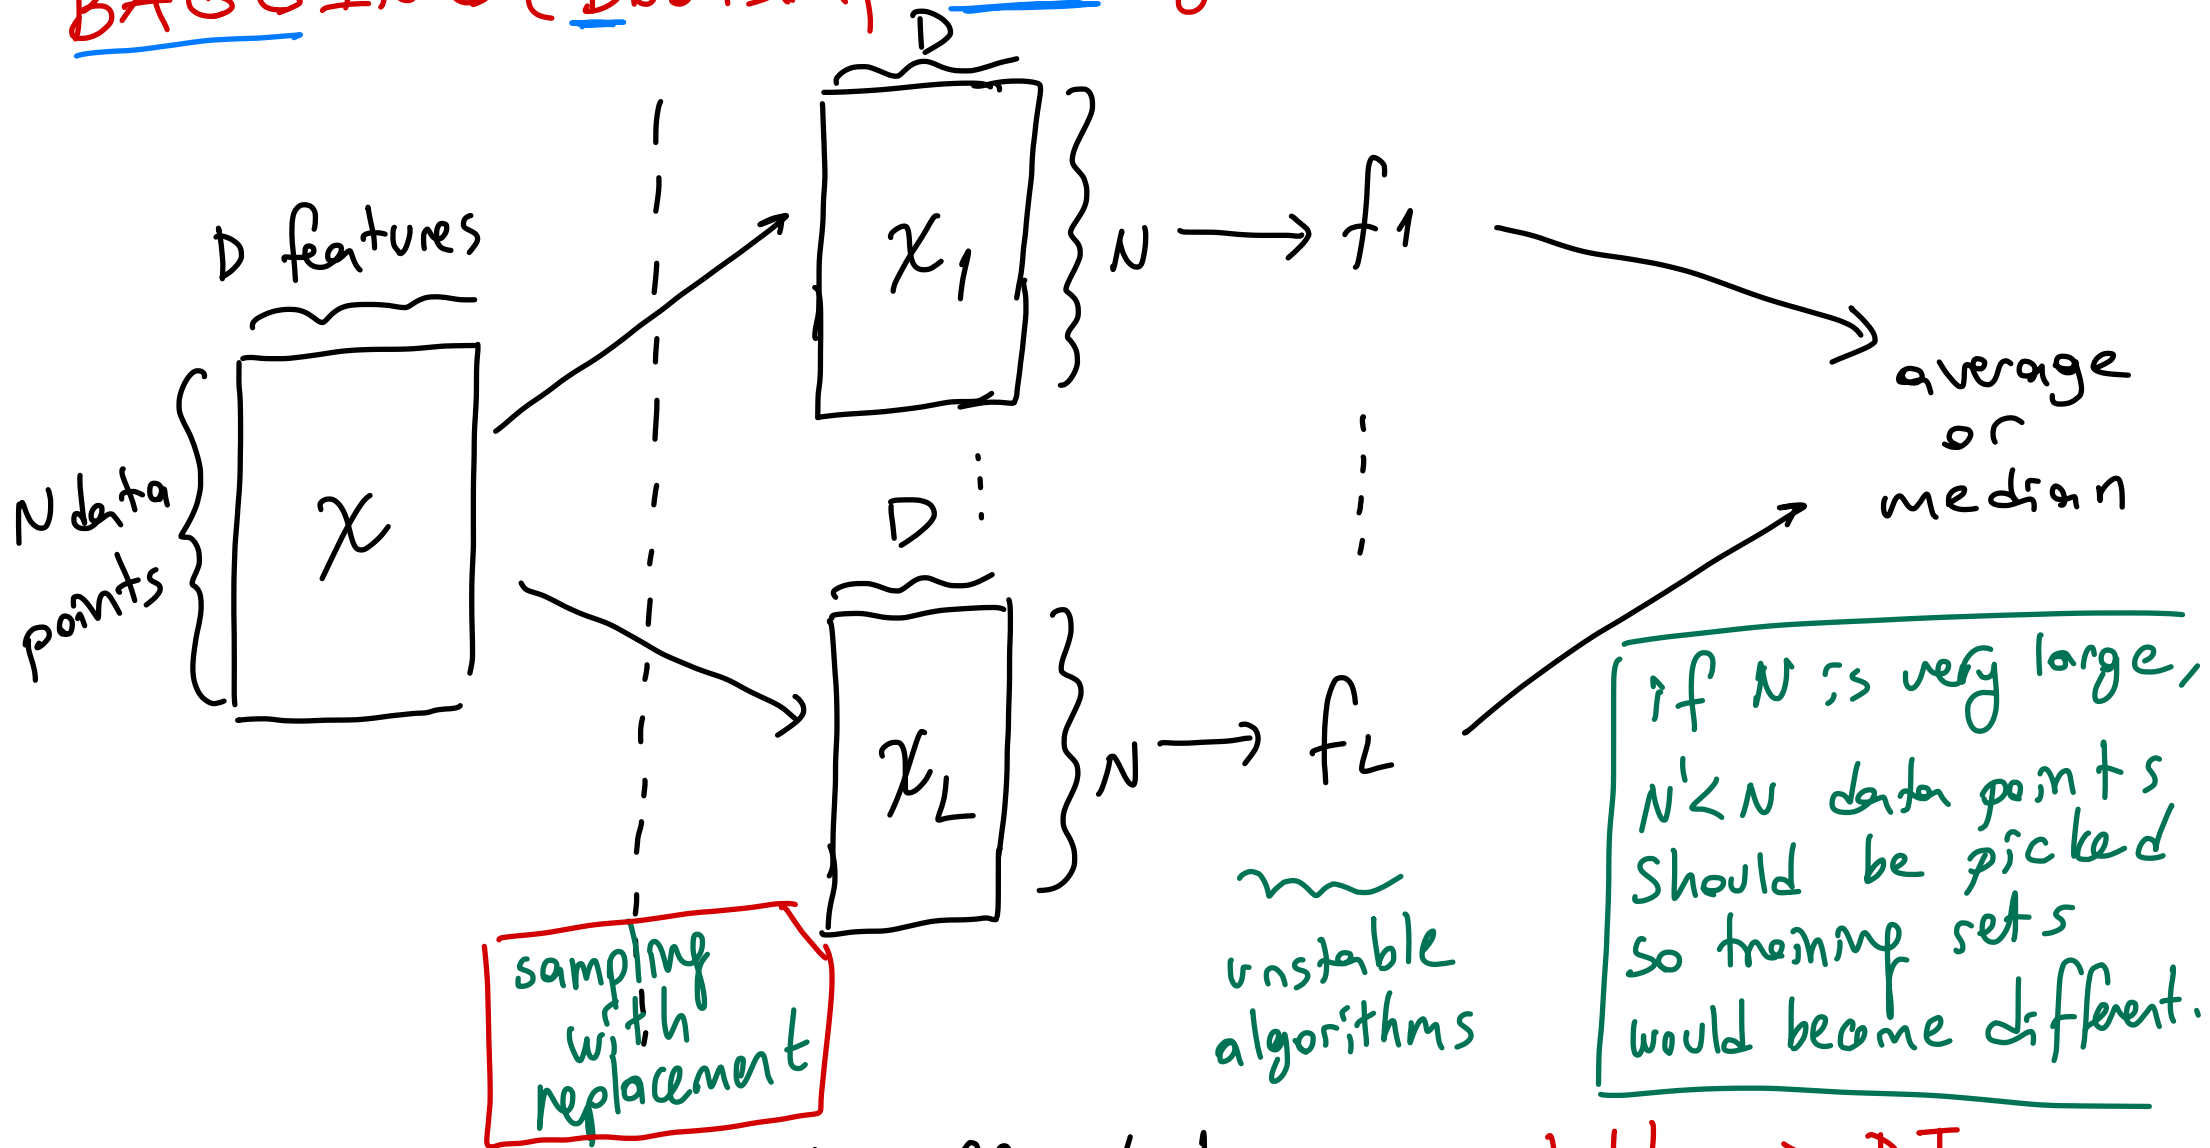 BAGGING (Bootstrap
D
D features
X
N data
points
X1
N
f1
D
XL
N
fL
average
or
median
sampling
with
replacement
unstable
algorithms
if N is very large,
N'<N data points
should be picked
so training sets
would become different.